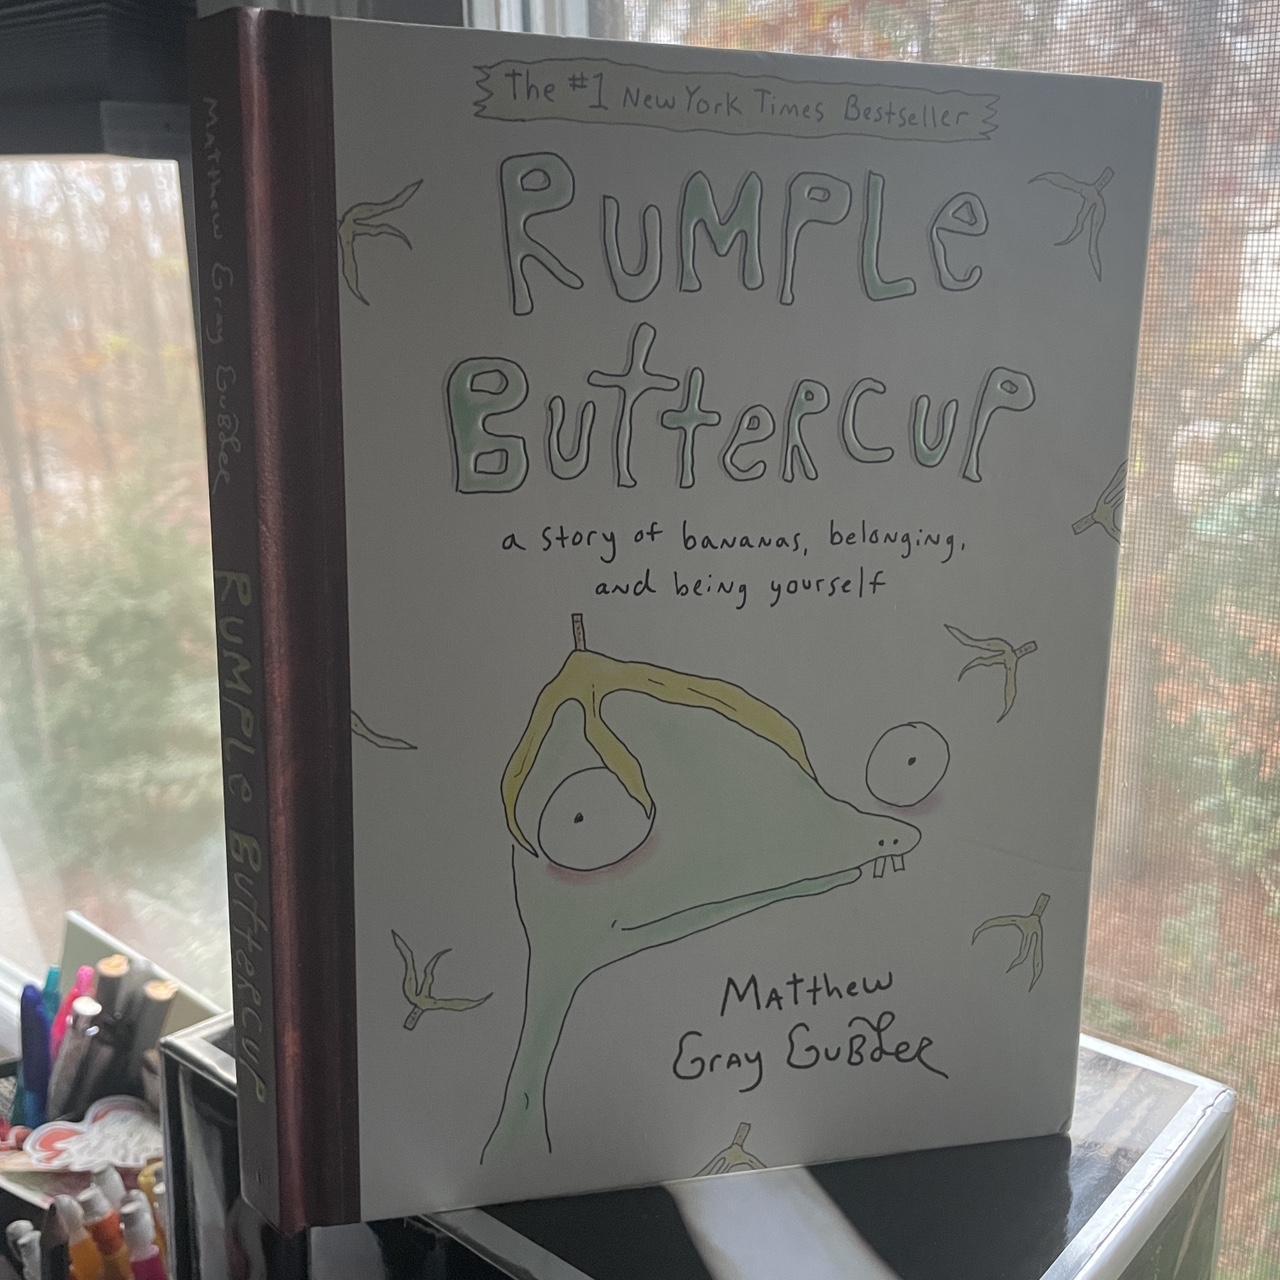 The #1 New York Times Bestseller
RUMPLE
BUTTERCUP
a story of bananas, belonging,
and being yourself
Matthew
Gray Gubler
Matthew Gray Gubler RUMPLE BUTTERCUP